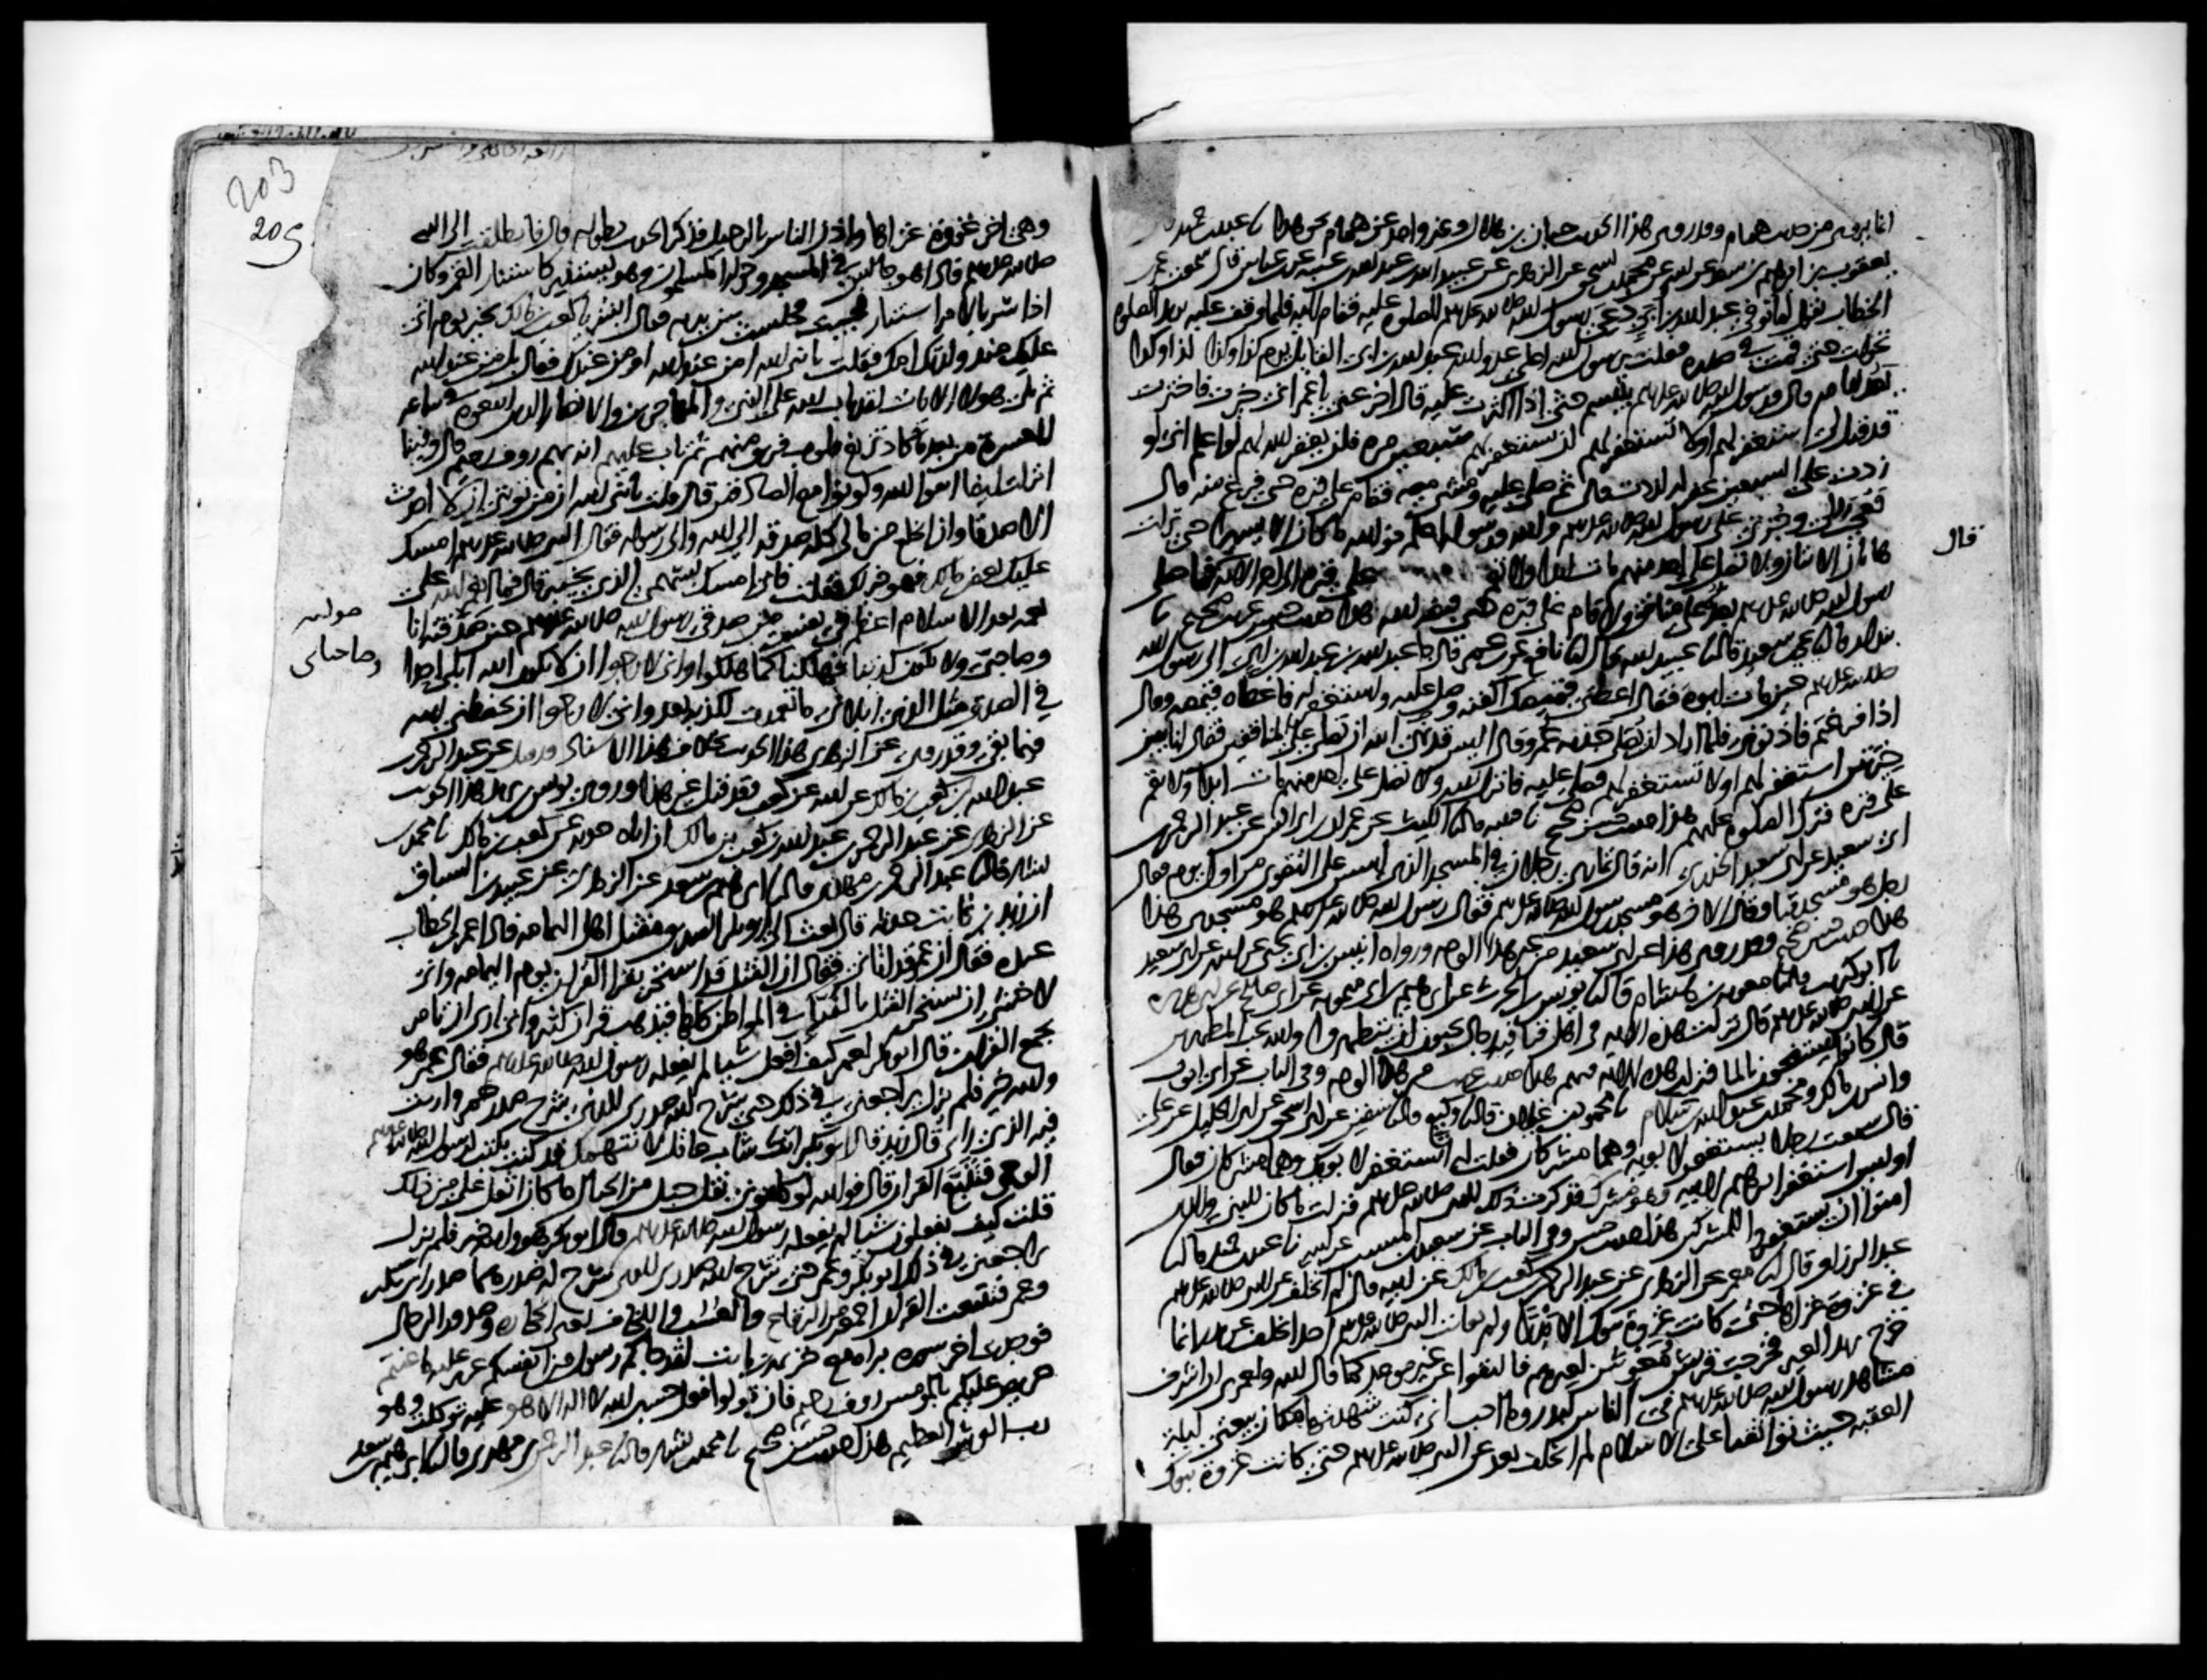 انما يروى من حديث همام وقد روى هذا الحديث حبان بن هلال وغير واحد عن همام نحو هذا نا عبد بن حميد
يعقوب بن ابراهيم بن سعد عن ابيه عن محمد بن اسحق عن الزهري عن عبيد الله بن عبد الله بن عتبة عن ابن عباس قال سمعت عمر
الخطاب يقول لما توفي عبد الله بن ابي دعي رسول الله صلى الله عليه وسلم للصلوة عليه فقام اليه فلما وقف عليه يريد الصلوة
تحولت حتى قمت في صدره فقلت يا رسول الله اعلى عدو الله عبد الله بن ابي القايل يوم كذا وكذا كذا وكذا
يعد ايامه قال ورسول الله صلى الله عليه وسلم يتبسم حتى اذا اكثرت عليه قال اخر عني يا عمر اني خيرت فاخترت
قد قيل لي استغفر لهم او لا تستغفر لهم ان تستغفر لهم سبعين مرة فلن يغفر الله لهم لو اعلم اني لو
زدت على السبعين غفر له لزدت قال ثم صلى عليه ومشى معه فقام على قبره حتى فرغ منه قال
فعجب لي وجرأتي على رسول الله صلى الله عليه وسلم والله ورسوله اعلم فوالله ما كان الا يسيرا حتى نزلت
هاتان الايتان ولا تصل على احد منهم مات ابدا ولا تقم على قبره الى اخر الاية فما صلى
رسول الله صلى الله عليه وسلم بعده على منافق ولا قام على قبره حتى قبضه الله هذا حديث حسن غريب صحيح نا
بندار قال نا يحيى بن سعيد قال نا عبيد الله قال انا نافع عن ابن عمر قال جا عبد الله بن عبد الله بن ابي الى رسول الله
صلى الله عليه وسلم حين مات ابوه فقال اعطني قميصك اكفنه وصل عليه واستغفر له فاعطاه قميصه وقال
اذا فرغتم فاذنوني فلما اراد ان يصلي جذبه عمر وقال اليس قد نهى الله ان تصلي على المنافقين فقال انا بين
خيرتين استغفر لهم اولا تستغفر لهم فصلى عليه فانزل الله ولا تصل على احد منهم مات ابدا ولا تقم
على قبره فترك الصلوة عليهم هذا حديث حسن صحيح نا قتيبة قال نا الليث عن عمران بن ابي انس عن عبد الرحمن
ابن ابي سعيد عن ابي سعيد الخدري انه قال تمارى رجلان في المسجد الذي اسس على التقوى من اول يوم فقال
رجل هو مسجد قبا وقال الاخر هو مسجد رسول الله صلى الله عليه وسلم فقال رسول الله صلى الله عليه وسلم هو مسجدي هذا
هذا حديث حسن صحيح وقد روي هذا عن ابي سعيد من غير هذا الوجه ورواه انيس بن ابي يحيى عن ابيه عن ابي سعيد
نا ابو كريب قال نا معوية بن هشام قال نا يونس بن الحرث عن ابراهيم بن ابي ميمونة عن ابي صالح عن ابي هريرة
عن النبي صلى الله عليه وسلم قال نزلت هذه الاية في اهل قبا فيه رجال يحبون ان يتطهروا والله يحب المطهرين
قال كانوا يستنجون بالما فنزلت هذه الاية فيهم هذا حديث غريب من هذا الوجه وفي الباب عن ابي ايوب
وانس بن مالك ومحمد بن عبد الله بن سلام نا محمود بن غيلان قال نا وكيع قال نا سفين عن ابي اسحق عن ابي الخليل عن علي
قال سمعت رجلا يستغفر لابويه وهما مشركان فقلت له اتستغفر لابويك وهما مشركان فقال
اوليس استغفر ابراهيم لابيه وهو مشرك فذكرت ذلك للنبي صلى الله عليه وسلم فنزلت ما كان للنبي والذين
امنوا ان يستغفروا للمشركين هذا حديث حسن وفي الباب عن سعيد بن المسيب عن ابيه نا عبد بن حميد قال نا
عبد الرزاق قال انا معمر عن الزهري عن عبد الرحمن بن كعب بن مالك عن ابيه قال لم اتخلف عن النبي صلى الله عليه وسلم
في غزوة غزاها حتى كانت غزوة تبوك الا بدرا ولم يعاتب النبي صلى الله عليه وسلم احدا تخلف عن بدر انما
خرج يريد العير فخرجت قريش مغوثين لعيرهم فالتقوا عن غير موعد كما قال الله ولعمري ان اشرف
مشاهد رسول الله صلى الله عليه وسلم في الناس لبدر وما احب اني كنت شهدتها مكان بيعتي ليلة
العقبة حيث تواثقنا على الاسلام ثم لم اتخلف بعد عن النبي صلى الله عليه وسلم حتى كانت غزوة تبوك
قال
203
205
وهي اخر غزوة غزاها واذن الناس بالرحيل فذكر الحديث بطوله قال فانطلقت الى النبي
صلى الله عليه وسلم فاذا هو جالس في المسجد وحوله المسلمون وهو يستنير كاستنار القمر وكان
اذا سر بالامر استنار فجيت فجلست بين يديه فقال ابشر يا كعب بن مالك بخير يوم اتى
عليك منذ ولدتك امك فقلت يا نبي الله امن عند الله او من عندك فقال بل من عند الله
ثم تلى هولاء الايات لقد تاب الله على النبي والمهاجرين والانصار الذين اتبعوه في ساعة
العسرة من بعد ما كاد تزيغ قلوب فريق منهم ثم تاب عليهم انه بهم روف رحيم قال وفينا
انزلت ايضا اتقوا الله وكونوا مع الصادقين قال قلت يا نبي الله ان من توبتي ان لا احدث
الا صدقا وان انخلع من مالي كله صدقة الى الله والى رسوله فقال النبي صلى الله عليه وسلم امسك
عليك بعض مالك فهو خير لك فقلت فاني امسك سهمي الذي بخيبر قال فما انعم الله علي
نعمة بعد الاسلام اعظم في نفسي من صدقي رسول الله صلى الله عليه وسلم حين صدقته انا
وصاحبي ولا نكون كذبنا فهلكنا كما هلكوا واني لارجوا ان لا يكون الله ابلى احدا
في الصدق مثل الذي ابلاني ما تعمدت لكذبة بعد واني لارجوا ان يحفظني الله
فيما بقي وقد روي عن الزهري هذا الحديث بخلاف هذا الاسناد وقد قيل عن عبد الرحمن بن
عبد الله بن كعب بن مالك عن ابيه عن كعب وقد قيل غير هذا وروى يونس بن يزيد هذا الحديث
عن الزهري عن عبد الرحمن بن عبد الله بن كعب بن مالك ان اباه حدثه عن كعب بن مالك نا محمد بن
بشار قال نا عبد الرحمن بن مهدي قال نا ابراهيم بن سعد عن الزهري عن عبيد بن السباق
ان زيد بن ثابت حدثه قال بعث الي ابو بكر الصديق مقتل اهل اليمامة فاذا عمر بن الخطاب
عنده فقال ان عمر قد اتاني فقال ان القتل قد استحر بقرا القران يوم اليمامة واني
لاخشى ان يستحر القتل بالقرا في المواطن كلها فيذهب قران كثير واني ارى ان تامر
بجمع القران قال ابو بكر لعمر كيف افعل شيا لم يفعله رسول الله صلى الله عليه وسلم فقال عمر هو
والله خير فلم يزل يراجعني في ذلك حتى شرح الله صدري للذي شرح صدر عمر ورايت
فيه الذي راى قال زيد قال ابو بكر انك شاب عاقل لا نتهمك قد كنت تكتب لرسول الله صلى الله عليه وسلم
الوحي فتتبع القران قال فوالله لو كلفوني نقل جبل من الجبال ما كان اثقل علي من ذلك
قلت كيف تفعلون شيا لم يفعله رسول الله صلى الله عليه وسلم قال ابو بكر هو والله خير فلم يزل
يراجعني في ذلك ابو بكر وعمر حتى شرح الله صدري للذي شرح له صدرهما صدر ابي بكر
وعمر فتتبعت القران اجمعه من الرقاع والعسب واللخاف يعني الحجارة وصدور الرجال
فوجدت اخر سورة براءة مع خزيمة بن ثابت لقد جاكم رسول من انفسكم عزيز عليه ما عنتم
حريص عليكم بالمومنين روف رحيم فان تولوا فقل حسبي الله لا اله الا هو عليه توكلت وهو
رب العرش العظيم هذا حديث حسن صحيح نا محمد بن بشار قال نا عبد الرحمن بن مهدي قال نا ابراهيم بن سعد
وصاحباي